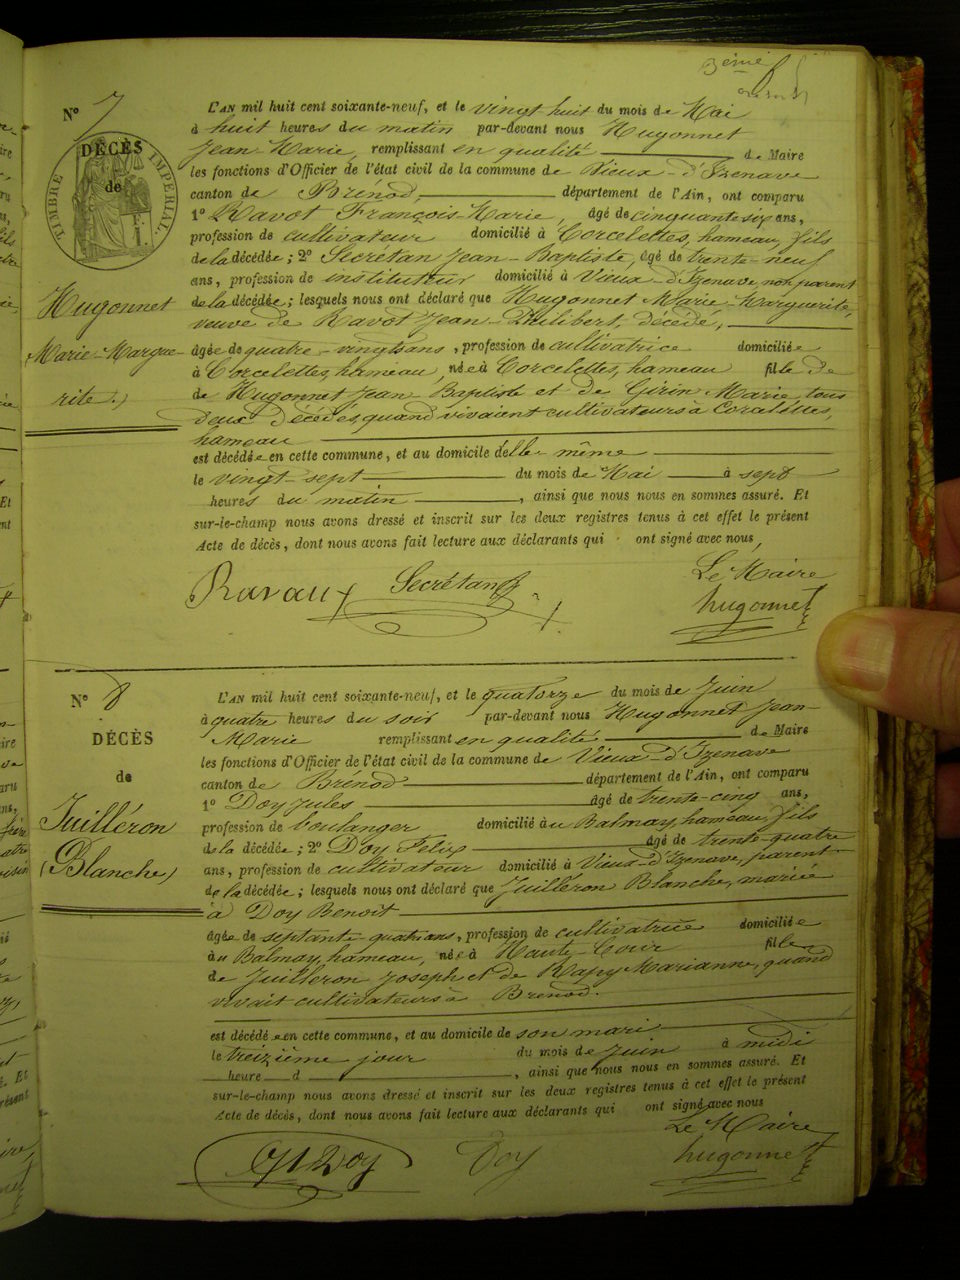 3ème
N° 7
DÉCÈS
de
TIMBRE IMPÉRIAL
Hugonnet
Marie-Margue-
rite.)
L'AN mil huit cent soixante-neuf, et le vingt huit du mois de Mai
à huit heures du matin par-devant nous Hugonnet
Jean-Marie, remplissant en qualité de Maire
les fonctions d'Officier de l'état civil de la commune de Vieux-d'Izenave
canton de Brénod, département de l'Ain, ont comparu
1° Ravot François-Marie, âgé de cinquante six ans,
profession de cultivateur domicilié à Corcelettes, hameau, fils
de la décédée; 2° Secrétan Jean-Baptiste, âgé de trente-neuf
ans, profession de instituteur domicilié à Vieux-d'Izenave, non parent
de la décédée; lesquels nous ont déclaré que Hugonnet Marie-Marguerite,
veuve de Ravot Jean-Philibert, décédé,
âgée de quatre-vingts ans, profession de cultivatrice domiciliée
à Corcelettes, hameau, née à Corcelettes, hameau fille de
de Hugonnet Jean-Baptiste et de Girin Marie, tous
deux décédés, quand vivaient cultivateurs à Corcelettes,
hameau
est décédée en cette commune, et au domicile d'elle-même
le vingt-sept du mois de Mai à sept
heures du matin, ainsi que nous nous en sommes assuré. Et
sur-le-champ nous avons dressé et inscrit sur les deux registres tenus à cet effet le présent
Acte de décès, dont nous avons fait lecture aux déclarants qui ont signé avec nous,
Le Maire
Ravaux Secrétan hugonnet
N° 8
DÉCÈS
de
Juilléron
(Blanche)
L'AN mil huit cent soixante-neuf, et le quatorze du mois de Juin
à quatre heures du soir par-devant nous Hugonnet Jean-
Marie remplissant en qualité de Maire
les fonctions d'Officier de l'état civil de la commune de Vieux-d'Izenave
canton de Brénod département de l'Ain, ont comparu
1° Doy Jules âgé de trente-cinq ans,
profession de boulanger domicilié au Balmay, hameau, fils
de la décédée; 2° Doy Félix âgé de trente-quatre
ans, profession de cultivateur domicilié à Vieux-d'Izenave, parent
de la décédée; lesquels nous ont déclaré que Juilléron Blanche, mariée
à Doy Benoit
âgée de septante-quatre ans, profession de cultivatrice domiciliée
au Balmay, hameau, née à Haute Cour fille
de Juilleron Joseph et de Rapy Marianne, quand
vivait cultivateurs à Brenod.
est décédée en cette commune, et au domicile de son mari
le treizième jour du mois de Juin à midi
heure d , ainsi que nous nous en sommes assuré. Et
sur-le-champ nous avons dressé et inscrit sur les deux registres tenus à cet effet le présent
Acte de décès, dont nous avons fait lecture aux déclarants qui ont signé avec nous
Le Maire
Doy Doy hugonnet